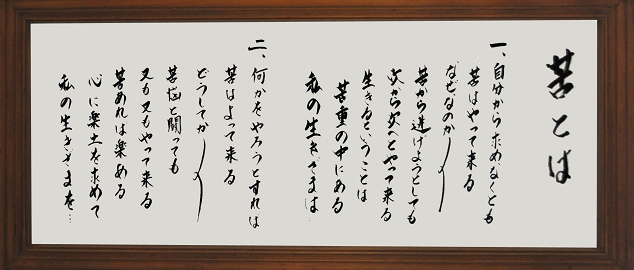 苦とは
一、自分から求めなくとも
苦はやって来る
なぜ、なのかー
苦から逃げようとしても
次から次へとやって来る
生きるということは
苦重の中にある
私の生きざまは…
二、何かをやろうとすれば
苦はよって来る
どうしてかー
苦悩と闘っても
又も又もやって来る
苦あれば楽ある
心に楽土を求めて
私の生きざまを…